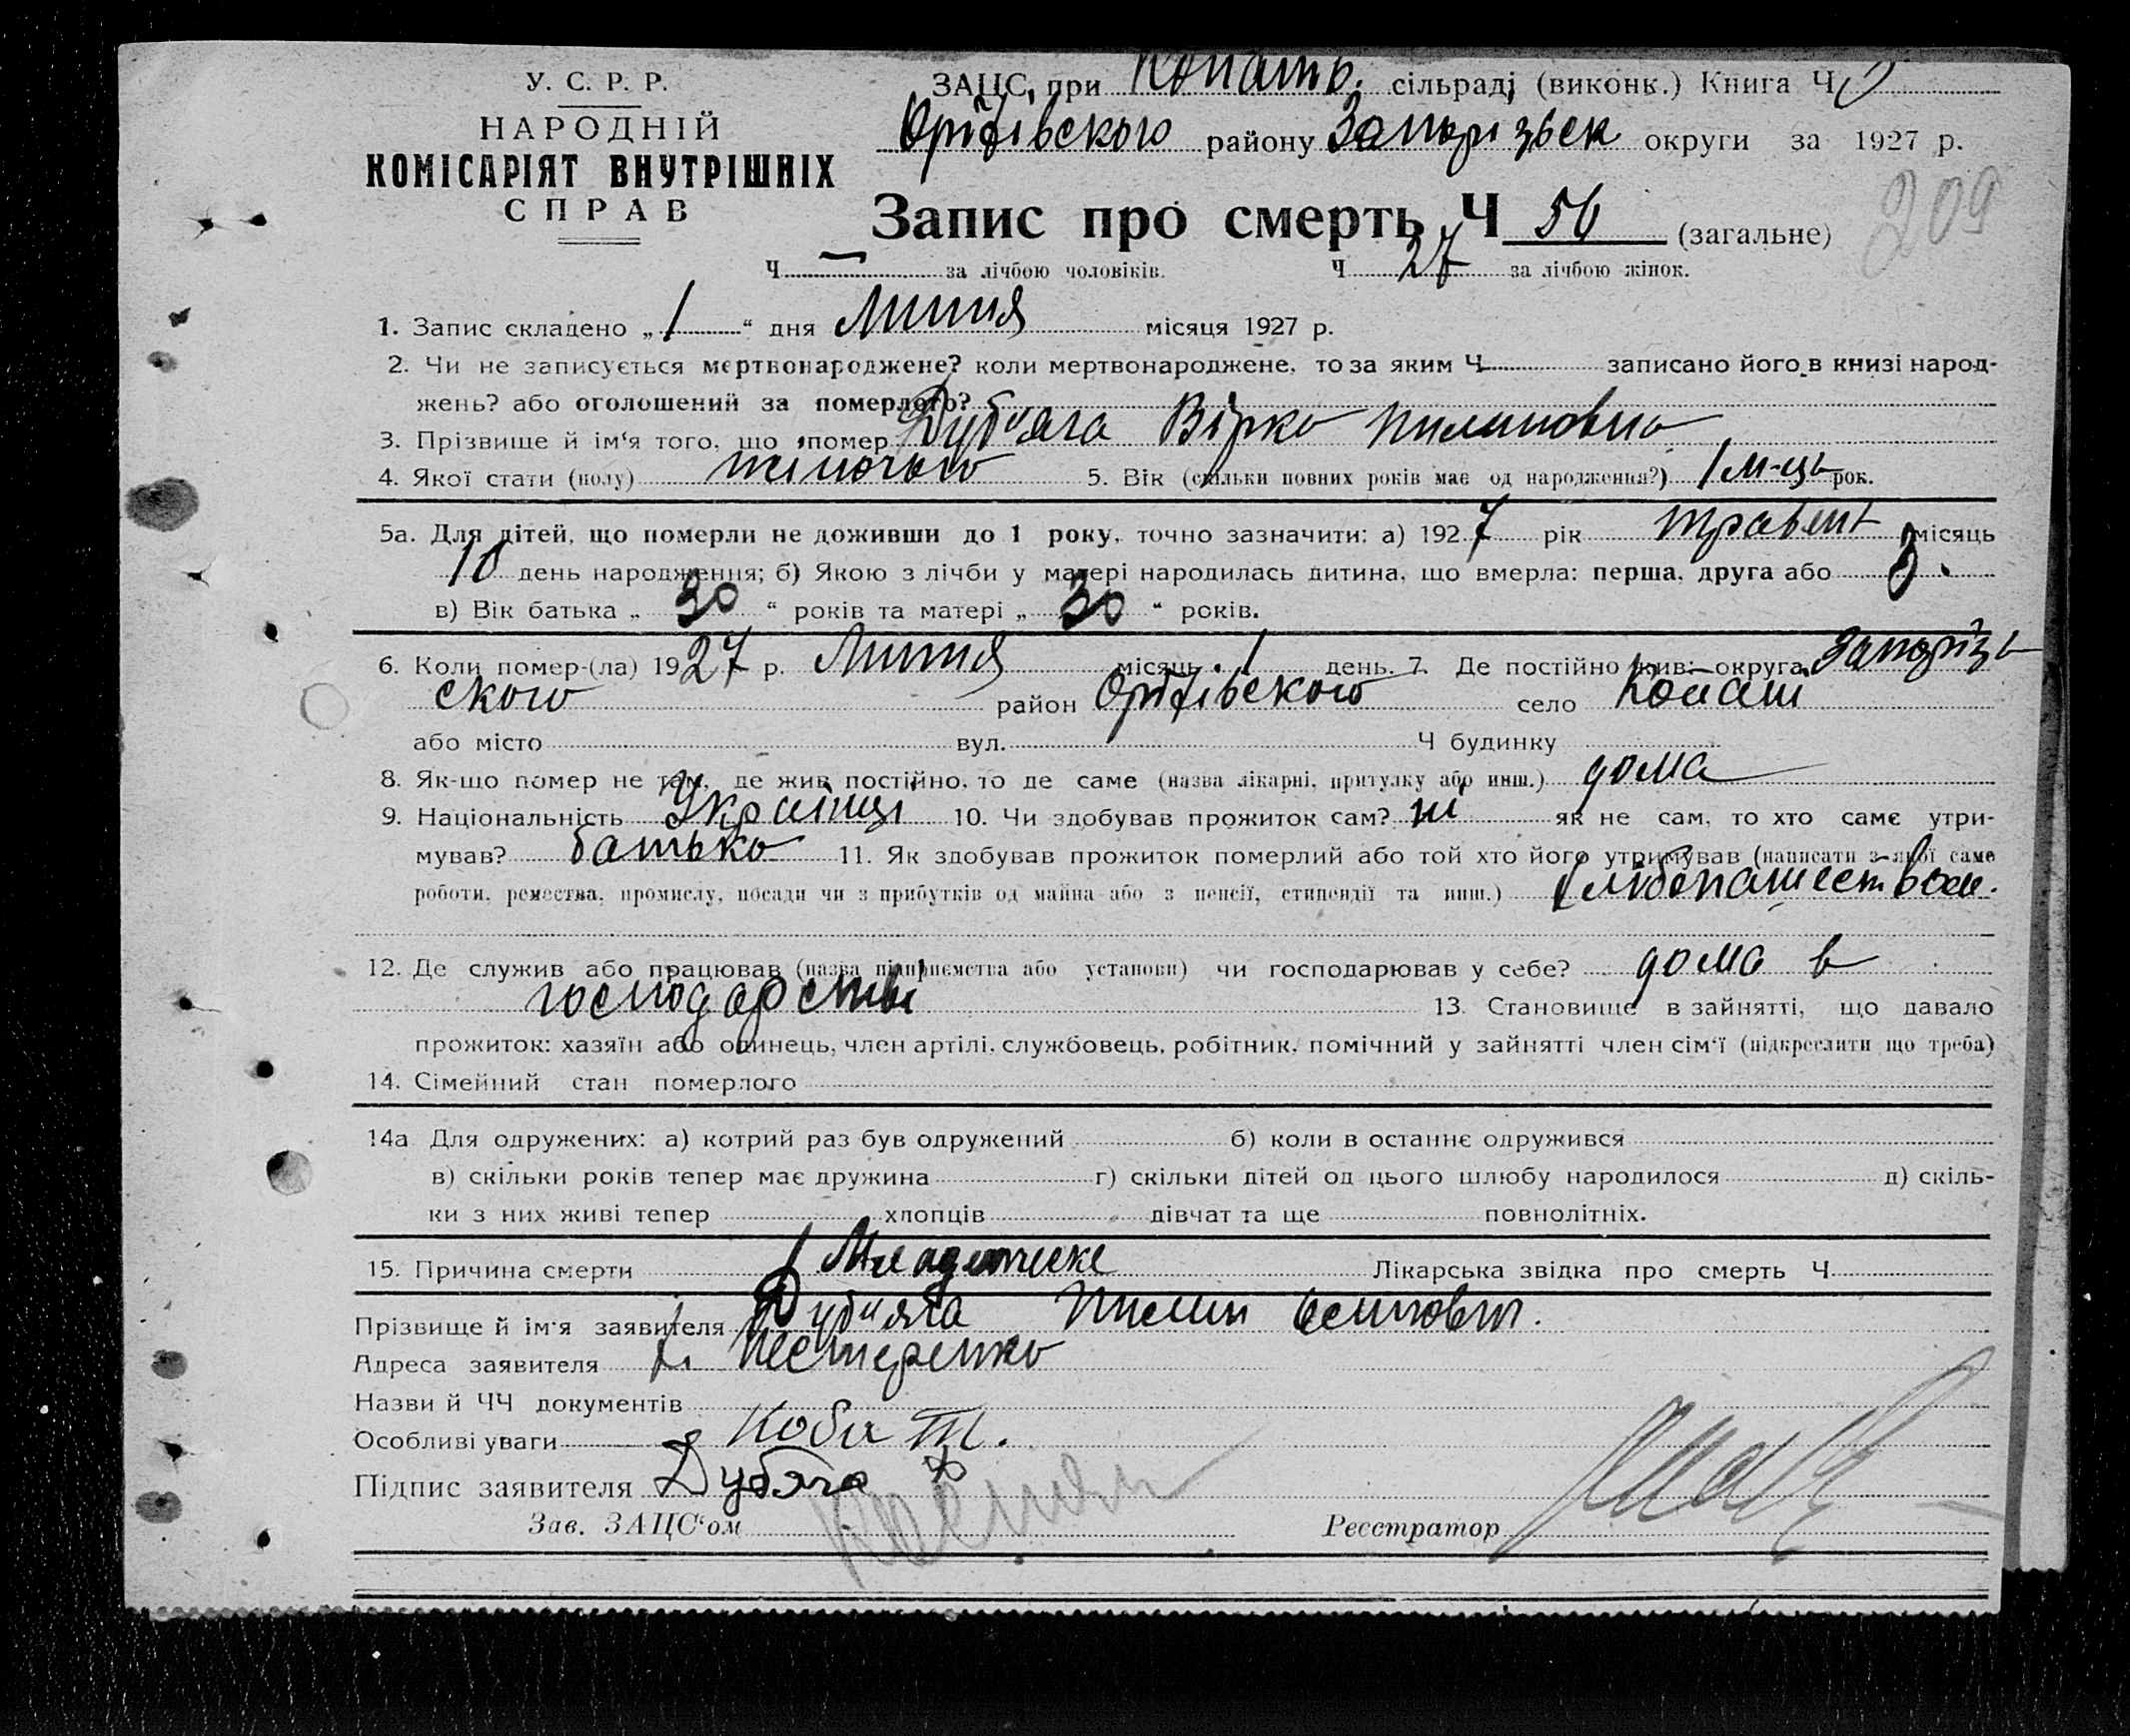 У. С. Р. Р.
НАРОДНІЙ
КОМІСАРІЯТ ВНУТРІШНІХ
СПРАВ
ЗАЦС при Копань. сільраді (виконк.) Книга Ч
Оріхівського району Запорізьк округи за 1927 р.
209
Запис про смерть Ч 50 (загальне)
Ч — за лічбою чоловіків. Ч 27 за лічбою жінок.
1. Запис складено „1“ дня Липня місяця 1927 р.
2. Чи не записується мертвонароджене? коли мертвонароджене, то за яким Ч записано його в книзі народ-
жень? або оголошений за померлого?
3. Прізвище й ім‘я того, що помер Дуб'яга Вірка Пилиповна
4. Якої стати (полу) жіночого 5. Вік (скільки повних років має од народження?) 1 м-ць рок.
5а. Для дітей, що померли не доживши до 1 року, точно зазначити: а) 1927 рік травень місяць
10 день народження; б) Якою з лічби у матері народилась дитина, що вмерла: перша, друга або 3.
в) Вік батька „30“ років та матері „30“ років.
6. Коли помер-(ла) 1927 р. Липня місяць 1 день. 7. Де постійно жив: округа Запорізь
ского район Оріхівського село Копані
або місто вул. Ч будинку
8. Як-що помер не там, де жив постійно, то де саме (назва лікарні, притулку або инш.) дома
9. Національність Українці 10. Чи здобував прожиток сам? ні як не сам, то хто саме утри-
мував? батько 11. Як здобував прожиток померлий або той хто його утримував (написати з якої саме
роботи, ремества, промислу, посади чи з прибутків од майна або з пенсії, стипендії та инш.) хлібопашеством.
12. Де служив або працював (назва підприємства або установи) чи господарював у себе? дома в
господарстві 13. Становище в зайнятті, що давало
прожиток: хазяїн або одинець, член артілі, службовець, робітник, помічний у зайнятті член сім‘ї (підкреслити що треба)
14. Сімейний стан померлого
14а Для одружених: а) котрий раз був одружений б) коли в останнє одружився
в) скільки років тепер має дружина г) скільки дітей од цього шлюбу народилося д) скіль-
ки з них живі тепер хлопців дівчат та ще повнолітніх.
15. Причина смерти Младэнческе Лікарська звідка про смерть Ч
Прізвище й ім'я заявителя Дуб'яга Пилип
Адреса заявителя Нестеренко
Назви й ЧЧ документів
Особливі уваги Коба
Підпис заявителя Дубяга
Зав. ЗАЦС‘ом Реєстратор